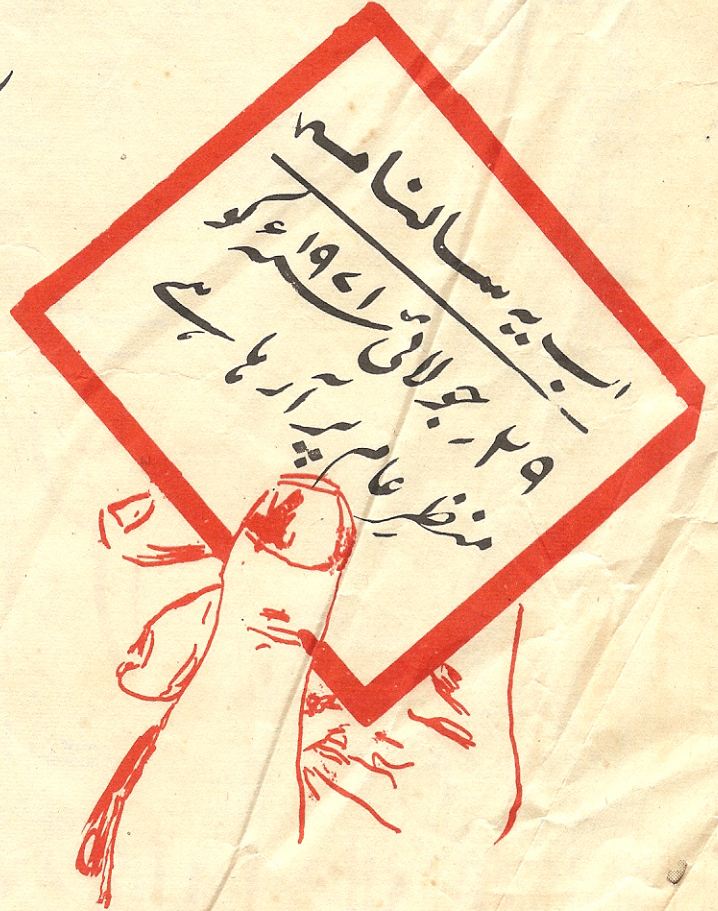 اب یہ سالنامہ
۲۹۔جولائی ؁۱۹۷۱ء کو
منظرِ عام پر آرہا ہے